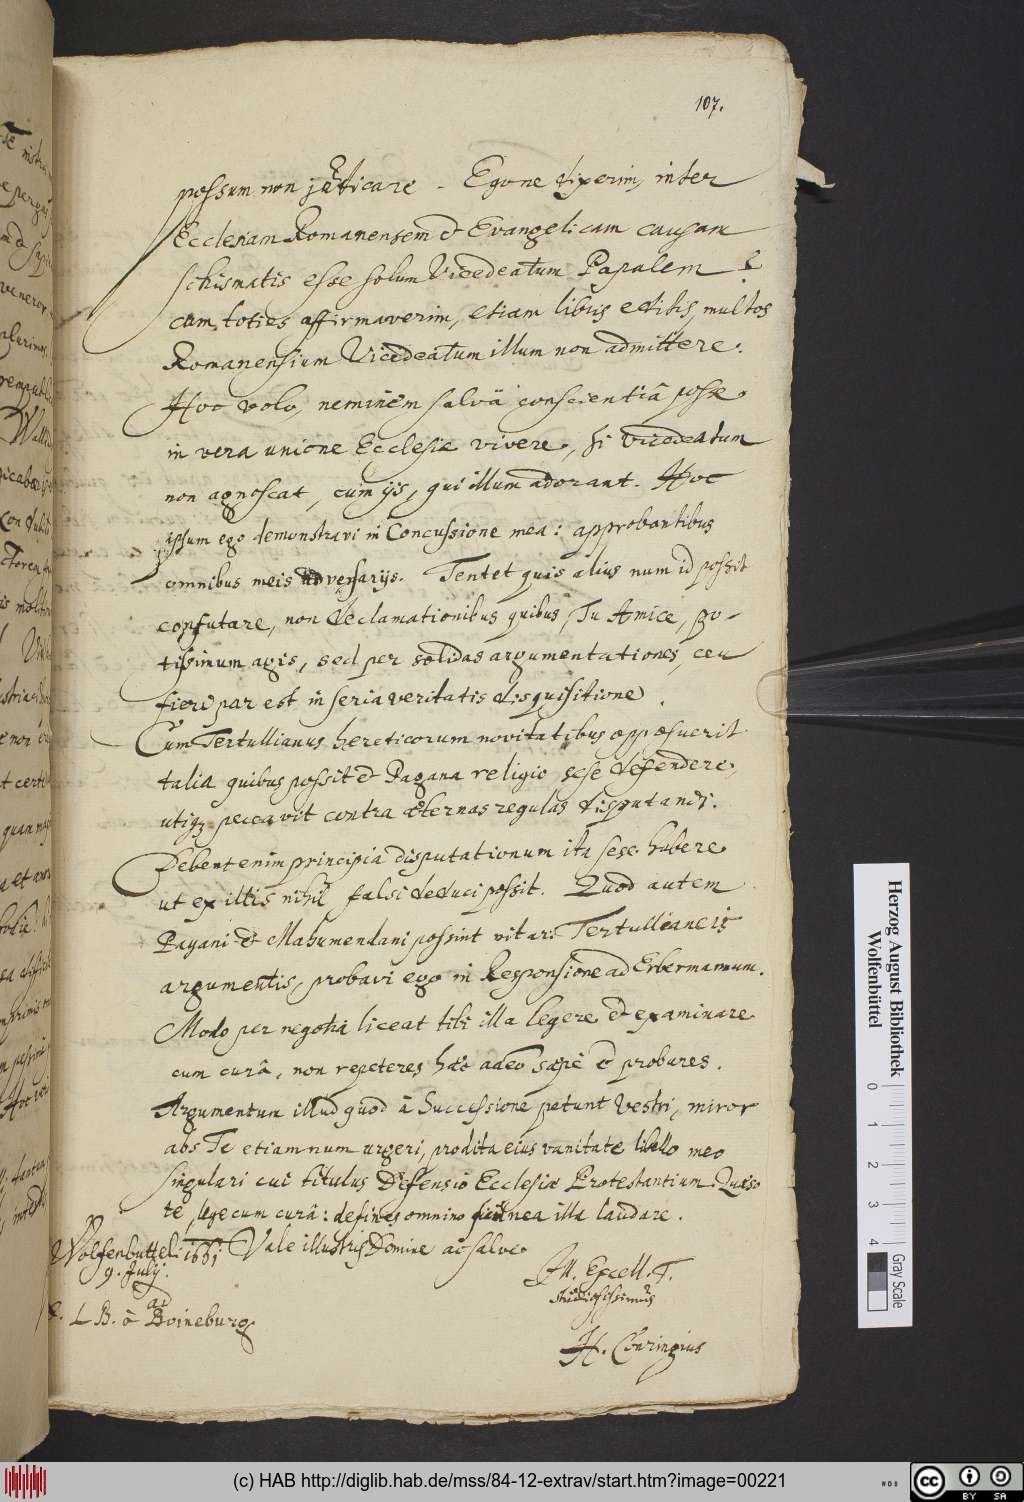 107.
possum non prædicare. Egone dixerim, inter
Ecclesiam Romanensem & Evangelicam causam
schismatis esse solum Vicedeatum Papalem?
cum toties affirmaverim, etiam libris editis, multos
Romanensium Vicedeatum illum non admittere.
Hoc volo, neminem salvâ conscientiâ posse
in vera unione Ecclesiæ vivere, si vicedeatum
non agnoscat, cum ijs, qui illum adorant. Hoc
ipsum ego demonstravi in Concussione mea: approbantibus
omnibus meis adversarijs. Tentet quis alius num id possit
confutare, non declamationibus quibus, Tu Amice, po-
tissimum agis, sed per solidas argumentationes, ceu
fieri par est in seria veritatis disquisitione.
Cum Tertullianus hereticorum novitatibus opposuerit
talia quibus possit & Pagana religio sese defendere,
utiq; peccavit contra æternas regulas disputandi.
Debent enim principia disputationum ita sese habere
ut ex illis nihil falsi deduci possit. Quod autem
Pagani & Mahumendani possint vitari Tertullianeis
argumentis, probavi ego in Responsione ad Erbermannum.
Modo per negotia liceat tibi illa legere & examinare
cum curâ, non repeteres hæc adeo sæpè & probares.
Argumentum illud quod â Successione petunt Vestri, miror
abs Te etiamnum urgeri, prodita eius vanitate libello meo
singulari cui titulus Defensio Ecclesiæ Protestantium. Quæso
te, lege cum curâ: desines omnino illa laudare.
Wolfenbutteli 1661 Vale illustris Domine ac salve
9. Julij.
Ill. Excell. T.
studiosissimus
ad
L. B. â Boineburg
H. Conringius
Herzog August Bibliothek
Wolfenbüttel
0 1 2 3 4
Gray Scale
(c) HAB http://diglib.hab.de/mss/84-12-extrav/start.htm?image=00221
cc BY SA